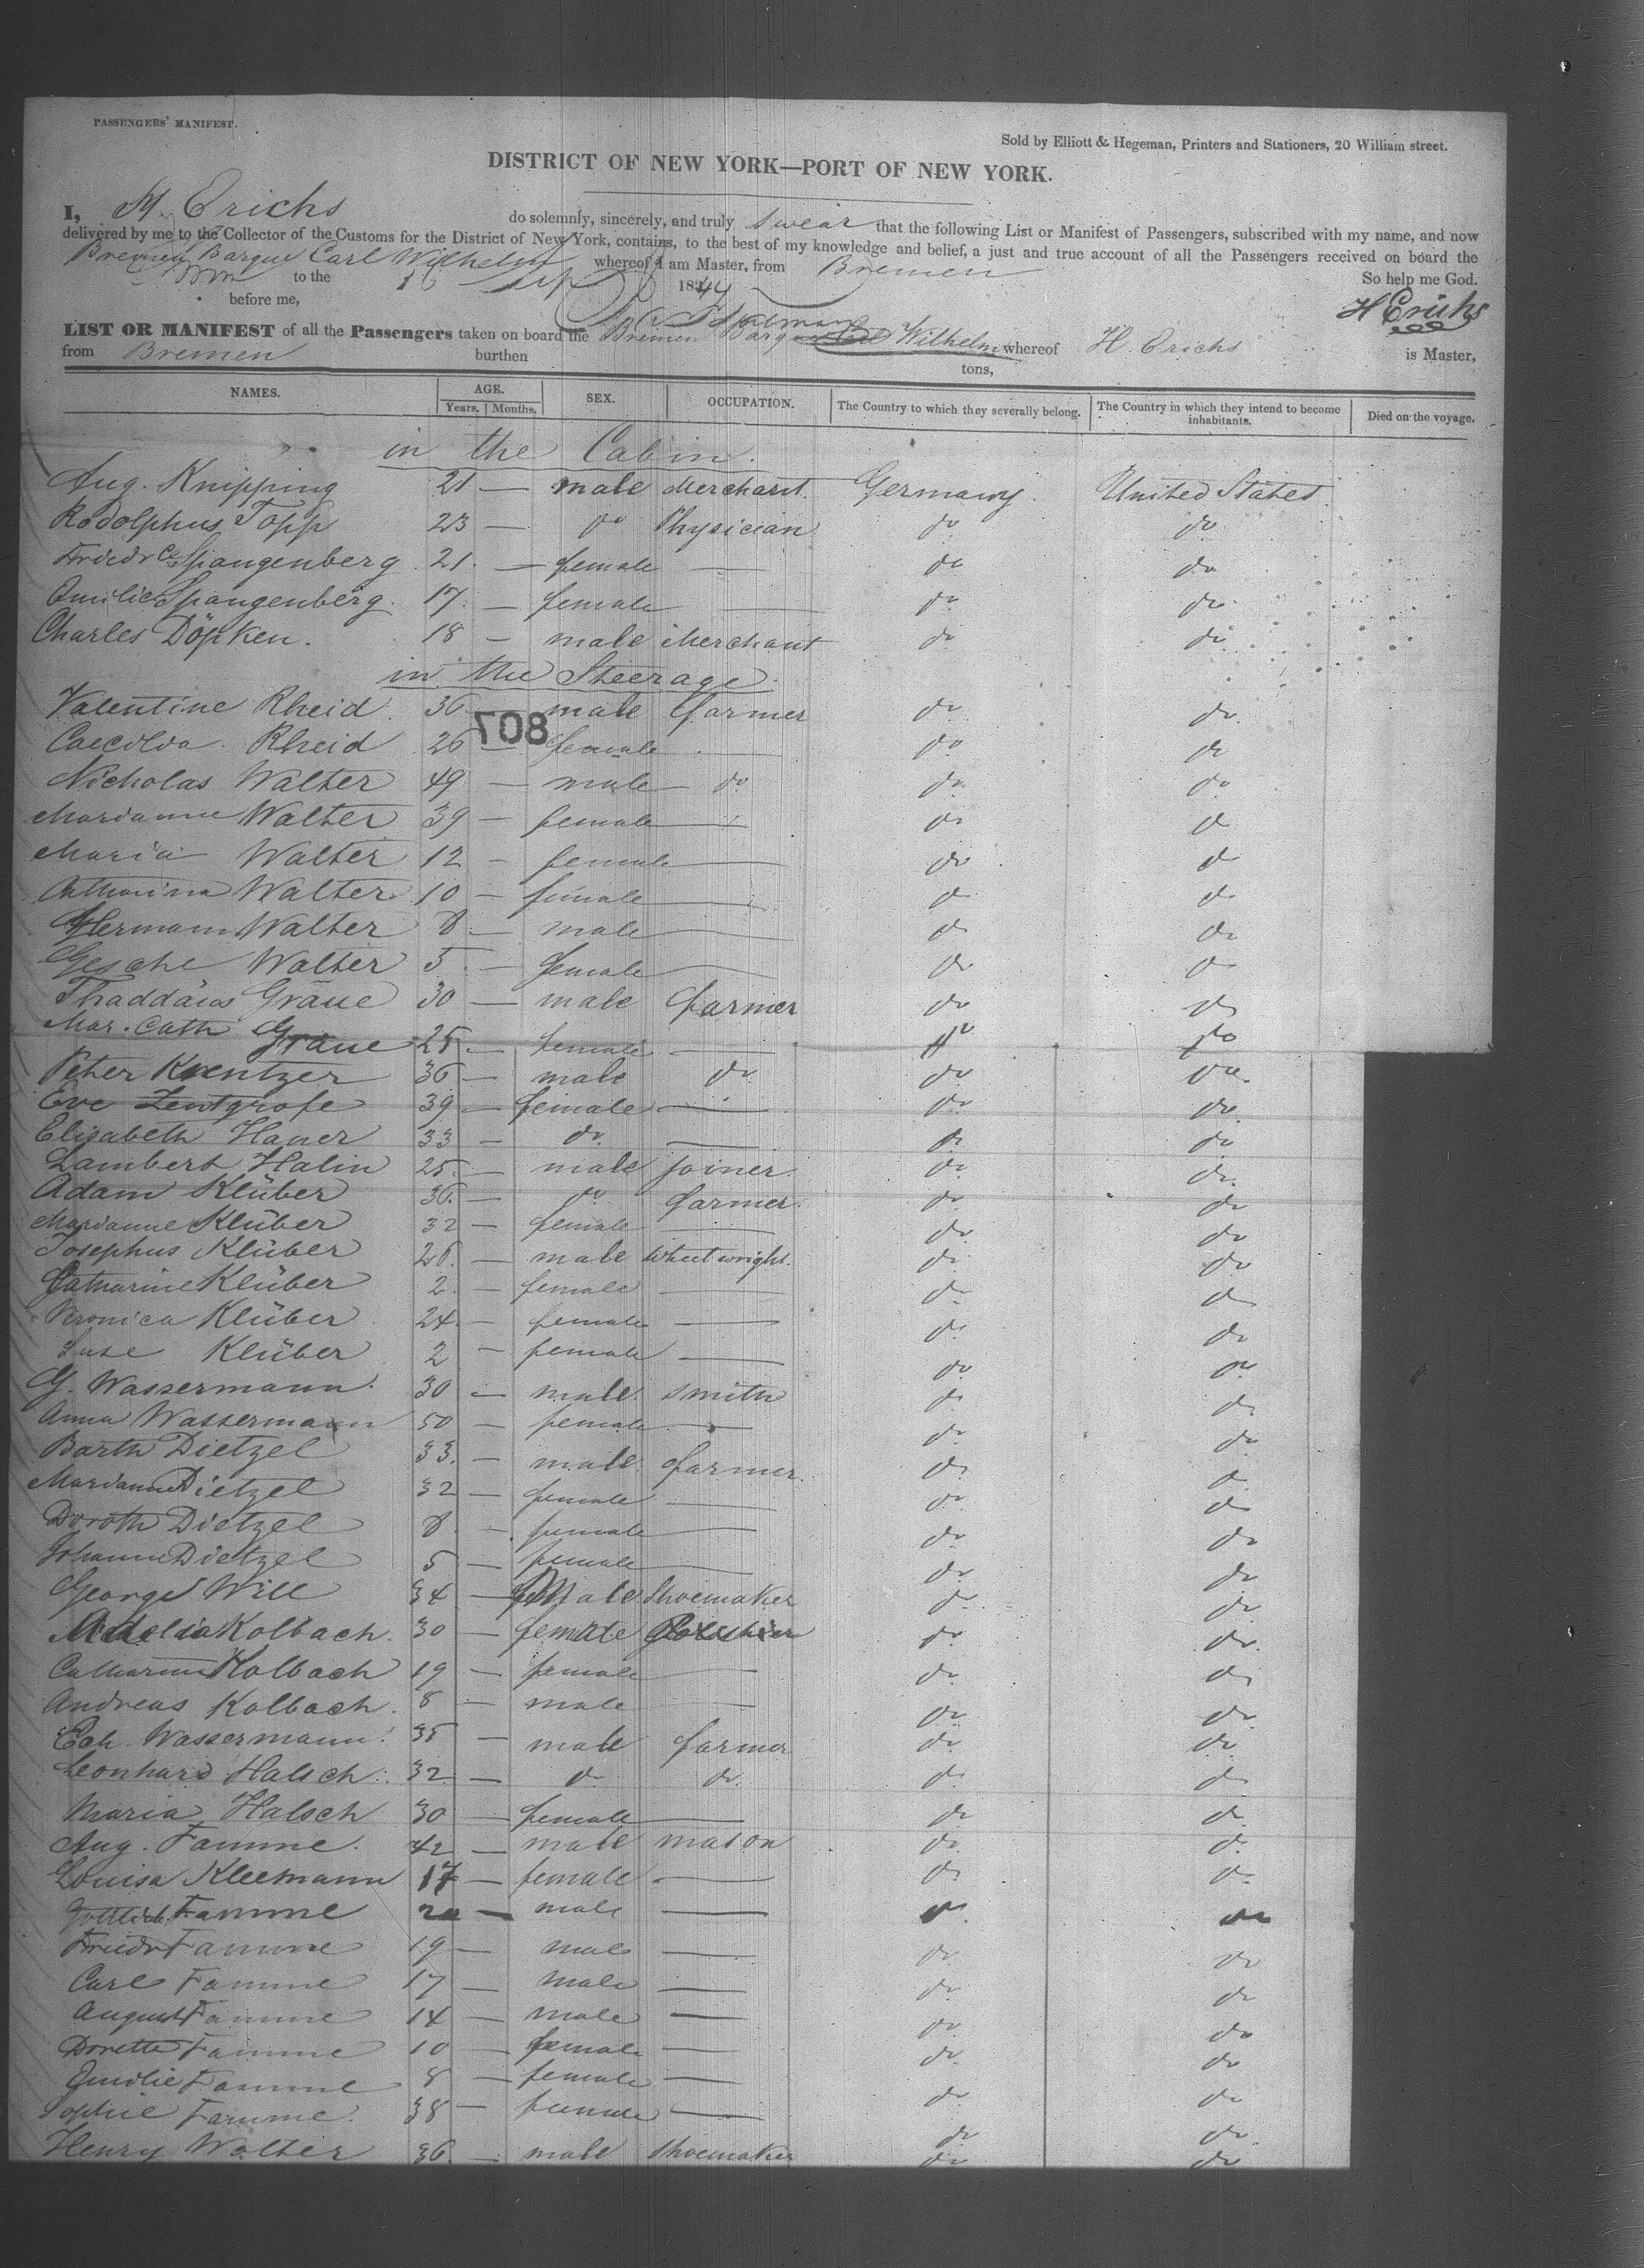 PASSENGERS' MANIFEST.
Sold by Elliott & Hegeman, Printers and Stationers, 20 William street.
DISTRICT OF NEW YORK—PORT OF NEW YORK.
I, H. Erichs do solemnly, sincerely, and truly swear that the following List or Manifest of Passengers, subscribed with my name, and now
delivered by me to the Collector of the Customs for the District of New York, contains, to the best of my knowledge and belief, a just and true account of all the Passengers received on board the
Bremen Barque Carl Wilhelm whereof I am Master, from Bremen
to the 16 Sep 1844 So help me God.
before me, H Erichs
LIST OR MANIFEST of all the Passengers taken on board the Bremen Barque Carl Wilhelm whereof H. Erichs is Master,
from Bremen burthen tons,
NAMES. AGE. SEX. OCCUPATION. The Country to which they severally belong. The Country in which they intend to become inhabitants. Died on the voyage.
Years. Months.
in the Cabin.
Aug. Knipping 21 — male Merchant. Germany. United States
Rodolphus Topp 23 — do Physician do do
Friedrce Spangenberg 21. — female — do do
Emilie Spangenberg. 17. — female — do do
Charles Döpken. 18 — male Merchant do do
in the Steerage.
Valentine Rheid. 36 — male farmer do do
708
Rheid 26 — female — do do
Nicholas Walter 49 — male do do do
Marianne Walter 39 — female — do do
Maria Walter 12 — female — do do
Catharina Walter 10 — female — do do
Hermann Walter 8 — male — do do
Gesche Walter 5 — female — do do
Thaddäus Gräue 30 — male farmer do do
Mar. Cath Gräue 25 — female — do do
Peter Krentzer 36 — male do do do
Eve Zentgrafe 39 — female — do do
Elisabeth Haner 33 — do. — do do
Lambert Halin 25. — male joiner. do do
Adam Klüber 36. — do farmer. do do
Marianne Klüber 32 — female — do do
Josephus Klüber 26. — male wheelwright. do do
Catharine Klüber 2. — female — do do
Veronica Klüber 24. — female — do do
Luse Klüber 2 — female — do do
G. Wassermann. 30 — male. smith do do
Anna Wassermann 50 — female — do do
Barth Dietzel 33. — male. farmer. do do
Marianne Dietzel 32 — female — do do
Doroth Dietzel 8. — female — do do
Johanne Dietzel 5 — female — do do
George Will 34 — Male Shoemaker do do
Kolbach. 30 — female do do
Catharine Kolbach 19 — female — do do
Andreas Kolbach. 8 — male — do do
Wassermann. 35 — male farmer do do
Leonhard Halsch. 32 — do do do do
Maria Halsch 30 — female — do do
Aug. Famme. 42 — male mason do do
Louisa Kleemann 17 — female — do do
Gottlieb. Famme 20 — male — do do
Friedr Famme 19 — male — do do
Carl Famme 17 — male — do do
August Famme 14 — male — do do
Dorette Famme 10 — female — do do
Emilie Famme 8 — female — do do
Sophie Famme. 38 — female — do do
Henry Wolter 36. — male Shoemaker do do